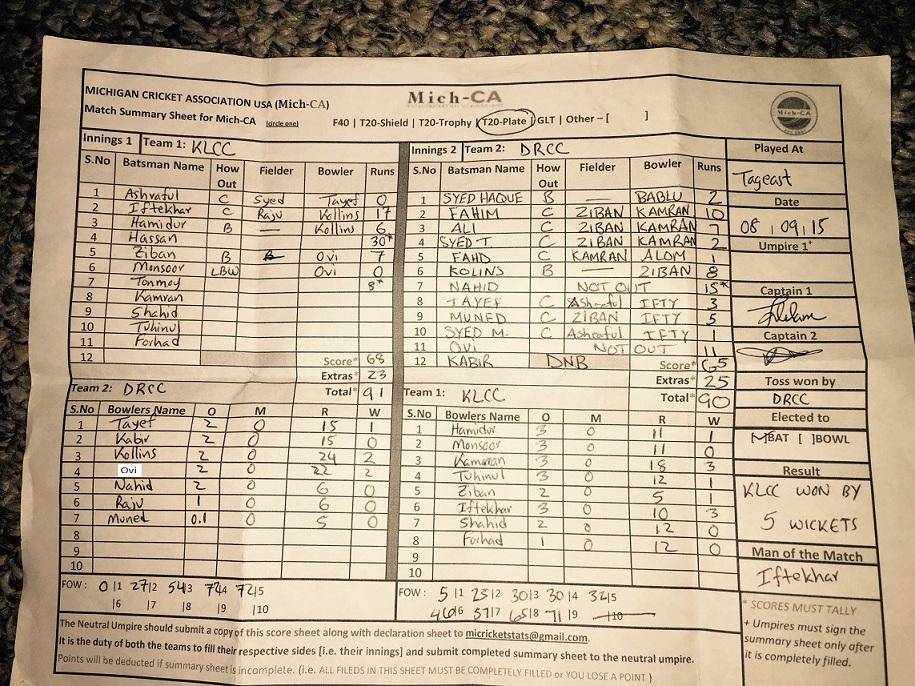 MICHIGAN CRICKET ASSOCIATION USA (Mich-CA)
Mich-CA
Mich-CA
Match Summary Sheet for Mich-CA (circle one) F40 | T20-Shield | T20-Trophy | T20-Plate | GLT | Other – [ ]
Innings 1 Team 1: KLCC
S.No Batsman Name How Out Fielder Bowler Runs
1 Ashraful C Syed Tayef 0
2 Iftekhar C Raju Kollins 17
3 Hamidur B — Kollins 6
4 Hassan 30*
5 Ziban B Ovi 7
6 Monsoor LBW Ovi 0
7 Tonmoy 8*
8 Kamran
9 Shahid
10 Tuhinul
11 Forhad
12
Score* 68
Extras* 23
Total* 91
Innings 2 Team 2: DRCC
S.No Batsman Name How Out Fielder Bowler Runs
1 SYED HAQUE B — BABLU 2
2 FAHIM C ZIBAN KAMRAN 10
3 ALI C ZIBAN KAMRAN 7
4 SYED T. C ZIBAN KAMRAN 2
5 FAHD C KAMRAN ALOM 1
6 KOLINS B — ZIBAN 8
7 NAHID NOT OUT 15*
8 TAYEF C Ashraful IFTY 3
9 MUNED C ZIBAN IFTY 5
10 SYED M. C Ashraful IFTY 1
11 OVI NOT OUT 11
12 KABIR DNB
Score* 65
Extras* 25
Total* 90
Team 2: DRCC
S.No Bowlers Name O M R W
1 Tayef 2 0 15 1
2 Kabir 2 0 15 0
3 Kollins 2 0 24 2
4 Ovi 2 0 22 2
5 Nahid 2 0 6 0
6 Raju 1 0 6 0
7 Muned 0.1 0 5 0
8
9
10
FOW: 0|1 27|2 54|3 72|4 72|5
|6 |7 |8 |9 |10
Team 1: KLCC
S.No Bowlers Name O M R W
1 Hamidur 3 0 11 1
2 Monsoor 3 0 11 0
3 Kamran 3 0 18 3
4 Tuhinul 3 0 12 1
5 Ziban 2 0 5 1
6 Iftekhar 3 0 10 3
7 Shahid 2 0 12 0
8 Forhad 1 0 12 0
9
10
FOW: 5|1 25|2 30|3 30|4 32|5
46|6 57|7 65|8 71|9 |10
Played At
Tageast
Date
08/09/15
Umpire 1*
Captain 1
Captain 2
Toss won by
DRCC
Elected to
[ ]BAT [ ]BOWL
Result
KLCC WON BY
5 WICKETS
Man of the Match
Iftekhar
* SCORES MUST TALLY
+ Umpires must sign the
summary sheet only after
it is completely filled.
The Neutral Umpire should submit a copy of this score sheet along with declaration sheet to micricketstats@gmail.com.
It is the duty of both the teams to fill their respective sides [i.e. their innings] and submit completed summary sheet to the neutral umpire.
Points will be deducted if summary sheet is incomplete. (i.e. ALL FILEDS IN THIS SHEET MUST BE COMPLETELY FILLED or YOU LOSE A POINT )